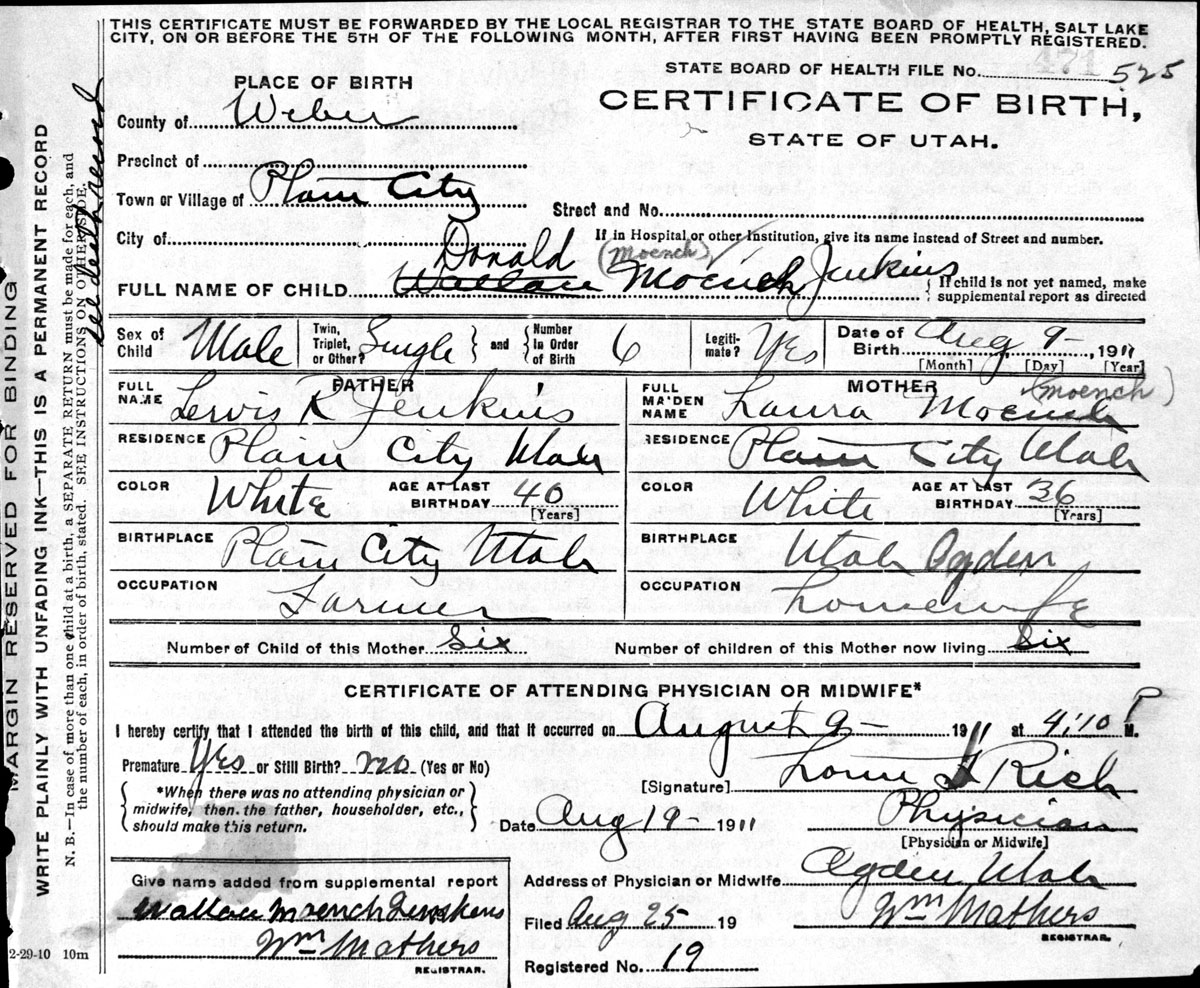 THIS CERTIFICATE MUST BE FORWARDED BY THE LOCAL REGISTRAR TO THE STATE BOARD OF HEALTH, SALT LAKE
CITY, ON OR BEFORE THE 5TH OF THE FOLLOWING MONTH, AFTER FIRST HAVING BEEN PROMPTLY REGISTERED.
MARGIN RESERVED FOR BINDING
WRITE PLAINLY WITH UNFADING INK—THIS IS A PERMANENT RECORD
N. B.—In case of more than one child at a birth, a SEPARATE RETURN must be made for each, and
the number of each, in order of birth, stated. SEE INSTRUCTIONS ON OTHER SIDE.
See death record
STATE BOARD OF HEALTH FILE No. 471 525
PLACE OF BIRTH
CERTIFICATE OF BIRTH,
STATE OF UTAH.
County of Weber
Precinct of
Town or Village of Plain City
Street and No.
City of
If in Hospital or other Institution, give its name instead of Street and number.
Donald (Moench)
FULL NAME OF CHILD Wallace Moench Jenkins
If child is not yet named, make
supplemental report as directed
Sex of Child Male Twin, Triplet, or Other? Single and Number In Order of Birth 6 Legitimate? Yes Date of Birth Aug 9- 1911
[Month] [Day] [Year]
FATHER MOTHER (moench)
FULL NAME Lervis R Jenkins FULL MAIDEN NAME Laura Moench
RESIDENCE Plain City Utah RESIDENCE Plain City Utah
COLOR White AGE AT LAST BIRTHDAY 40 [Years] COLOR White AGE AT LAST BIRTHDAY 36 [Years]
BIRTHPLACE Plain City Utah BIRTHPLACE Utah Ogden
OCCUPATION Farmer OCCUPATION Housewife
Number of Child of this Mother Six Number of children of this Mother now living Six
CERTIFICATE OF ATTENDING PHYSICIAN OR MIDWIFE*
I hereby certify that I attended the birth of this child, and that it occurred on August 9- 1911 at 4:10 P M.
Premature Yes or Still Birth? no (Yes or No)
[Signature] Rich
*When there was no attending physician or
midwife, then the father, householder, etc.,
should make this return.
Date Aug 19- 1911 Physician
[Physician or Midwife]
Give name added from supplemental report
Address of Physician or Midwife Ogden Utah
Wallace Moench Jenkens
Filed Aug 25 19 Wm Mathers
REGISTRAR.
Wm Mathers
REGISTRAR.
Registered No. 19
2-29-10 10m